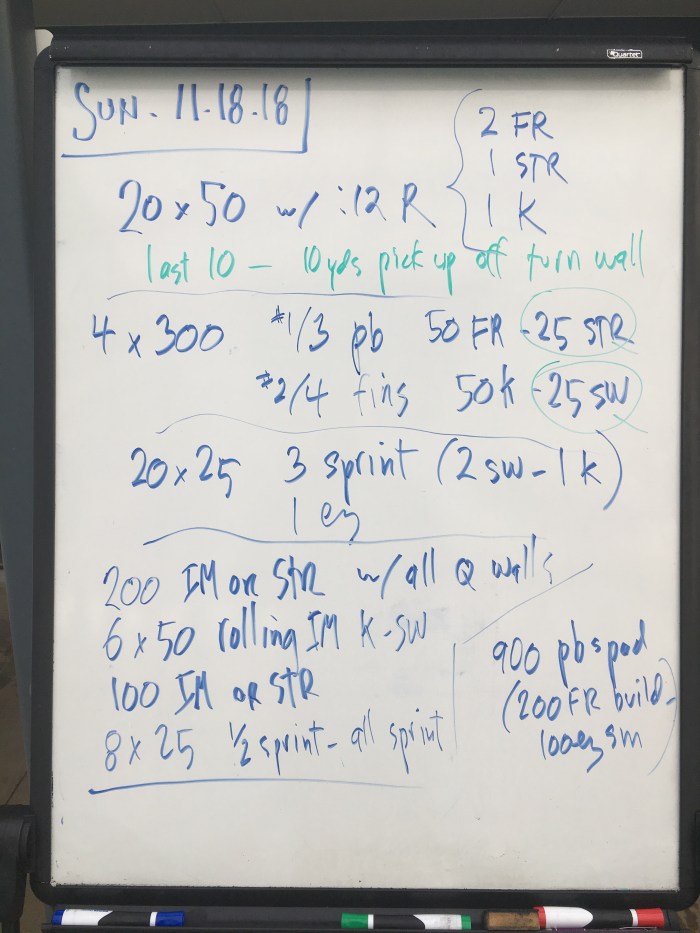 Quartet
SUN. 11.18.18
20 x 50 w/ :12 R
2 FR
1 STR
1 K
last 10 – 10yds pick up off turn wall
4 x 300 #1/3 pb 50 FR - 25 STR
#2/4 fins 50k - 25 sw
20 x 25 3 sprint (2 sw - 1 k)
1 ez
200 IM or STR w/ all Q walls
6 x 50 rolling IM K-SW
100 IM or STR
8 x 25 1/2 sprint - all sprint
900 pb & pad
(200 FR build -
100 ez sm)